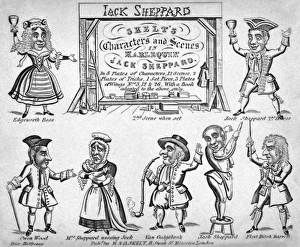 Jack Sheppard
SKELT'S
Characters and Scenes
IN
HARLEQUIN
JACK SHEPPARD.
In 8 Plates of Characters, 12 Scenes, 2
Plates of Tricks, 1 Set Piece, 3 Plates
of Wings Nos 17 & 26, With a Book
adapted to the above only.
2nd Scene when set
Edgeworth Bess
Jack Sheppard 2nd Dress
Owen Wood
Mrs Sheppard nursing Jack
Van Galgebrok
Jack Sheppard
First Dutch Baron
Pub by M & B SKELT, 11, Swan St Minories London